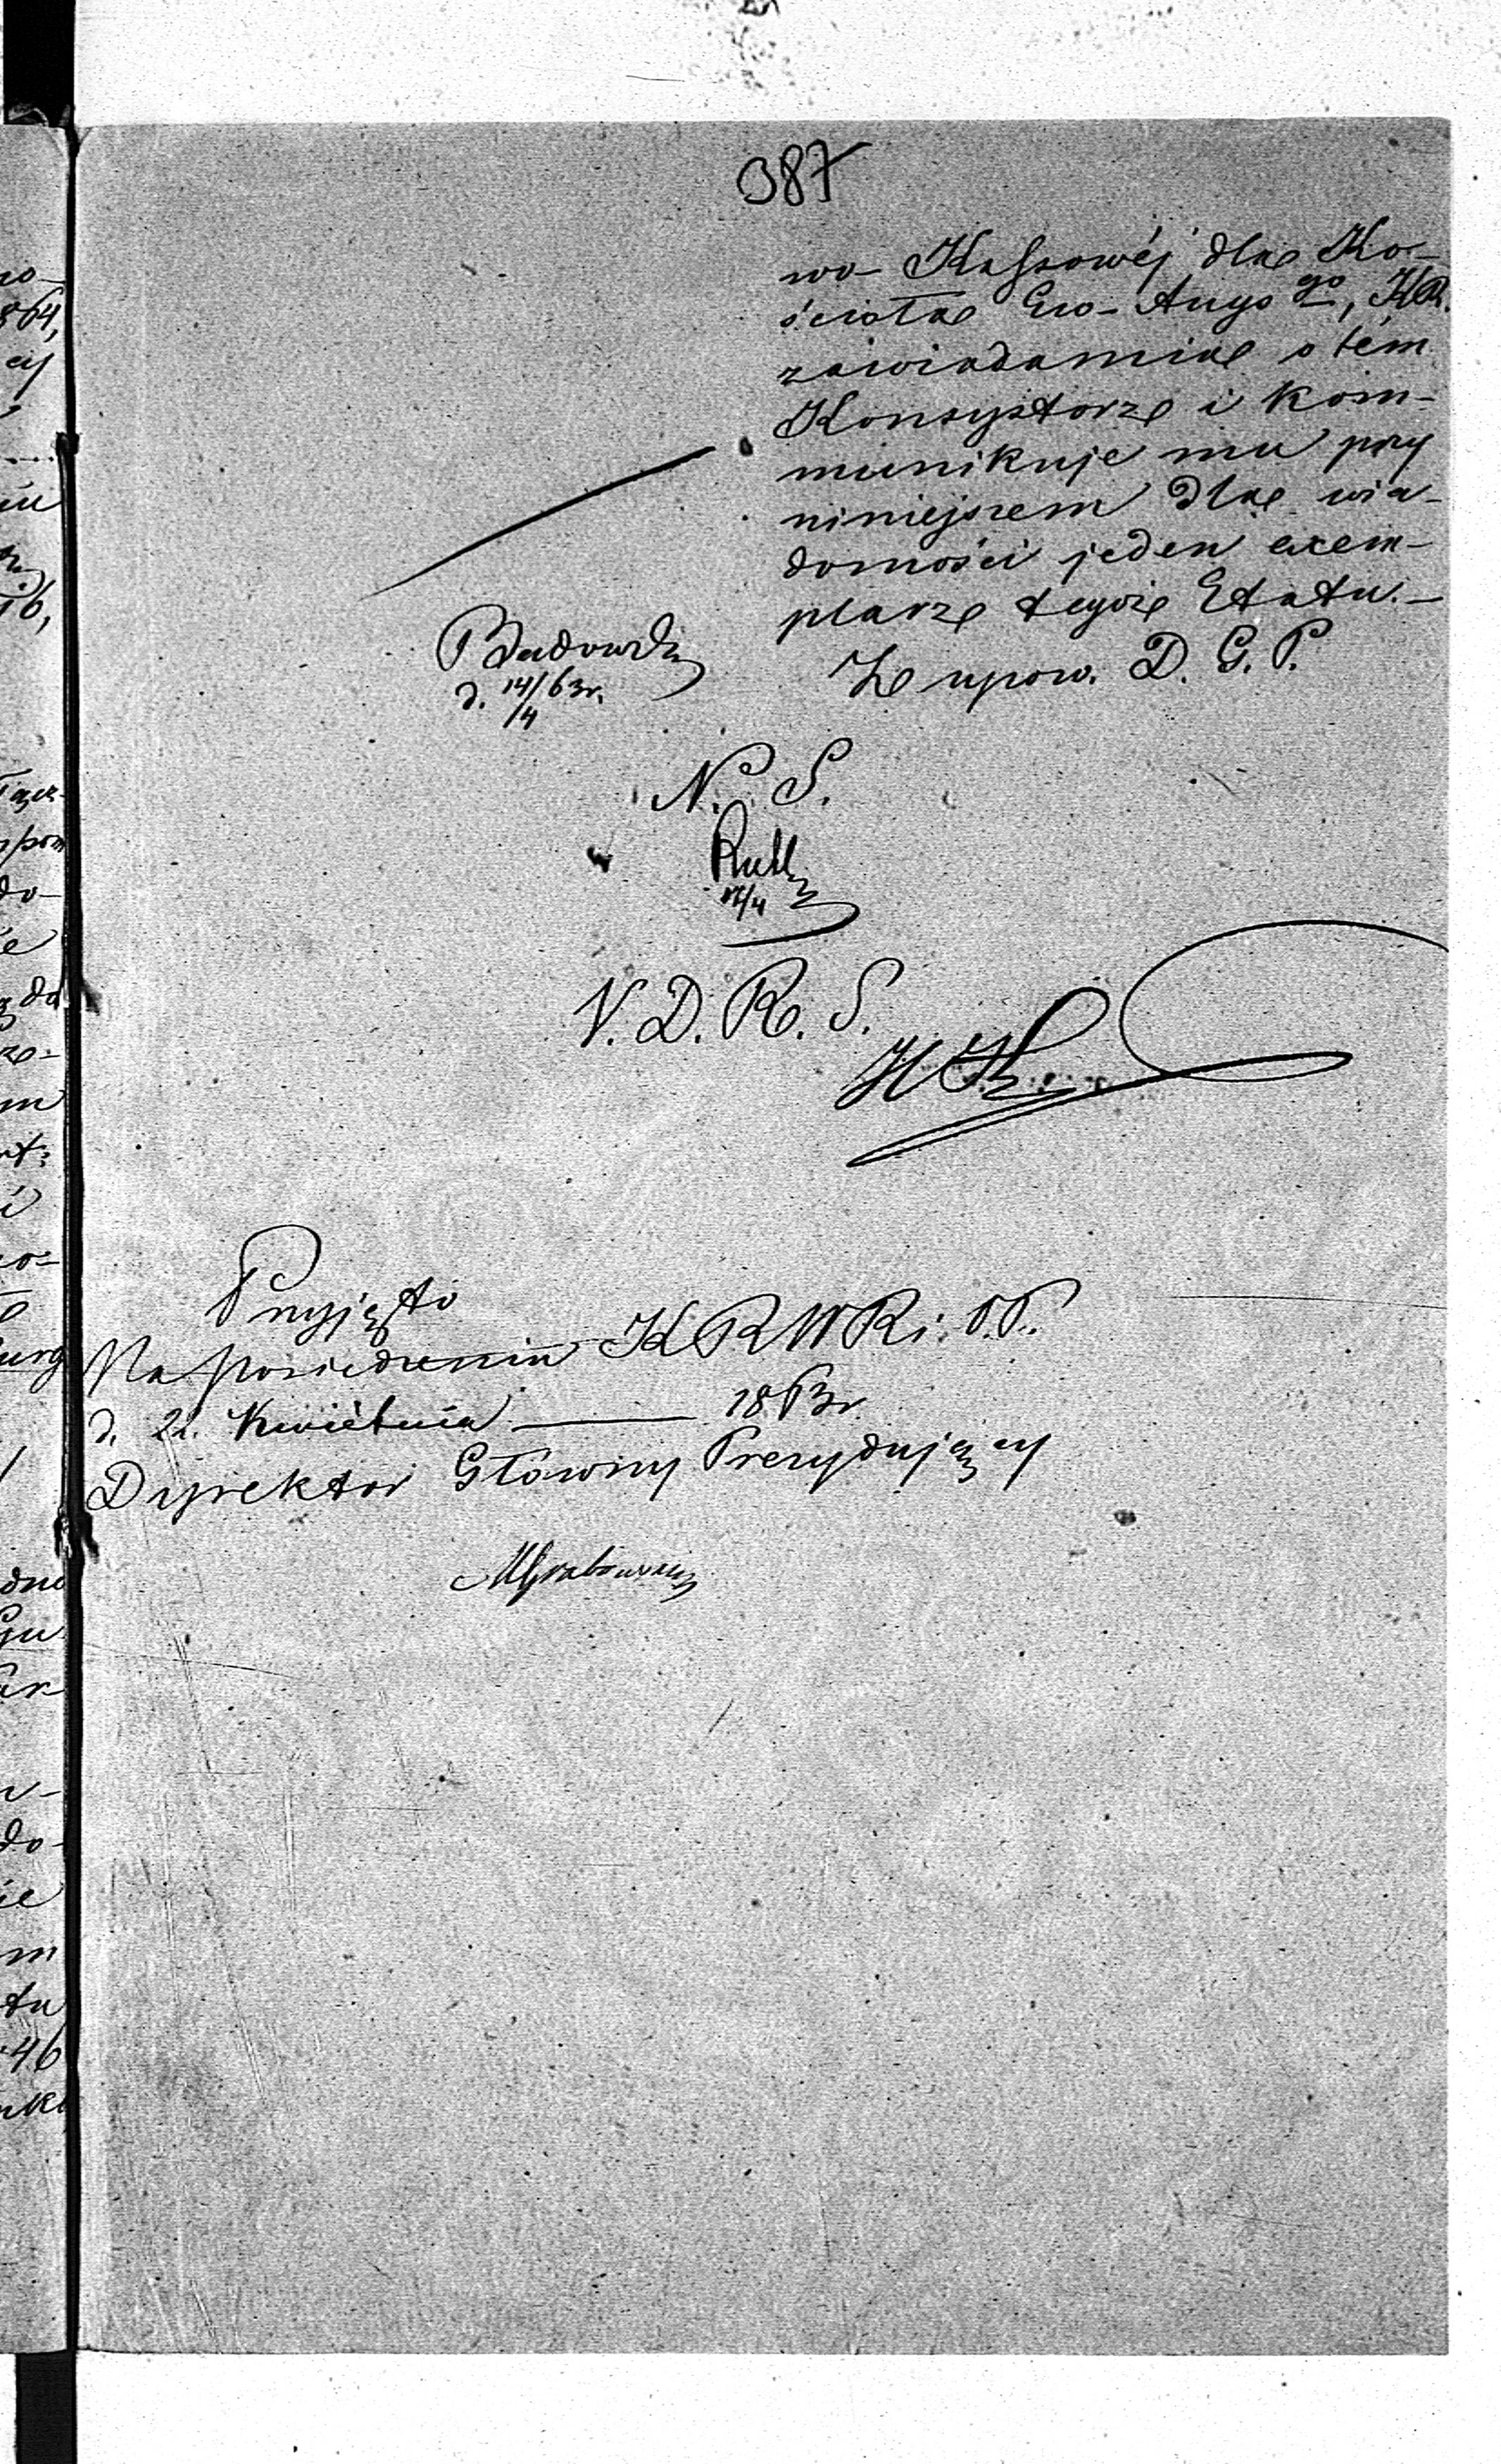 387
wo- Kassowéj dla Ko-
ścioła Ew- Augs go, KR.
zawiadamia o tém
Konsystorz i kom-
munikuje mu przy
niniejszem dla wia-
domości jeden exem-
plarz tegoż Etatu.-
Z upow. D. G. P.
d. 14/4 63 r.
N. S.
/4
V. D. R. S.
Przyjęto
Na posiedzeniu KRWR i O.P.
d. 22. Kwietnia 1863 r
Dyrektor Główny Prezydujący